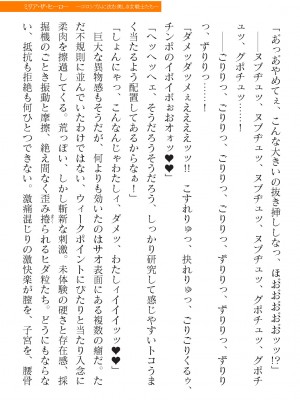 「あっあやめてぇ、こんな大きいの抜き挿ししなっ、ほおおおおおおッッ!?」
――ヌブヂュッ、ヌブヂュッ、ヌブヂュッ、ヌブヂュッ、グポチュッ、グポチ
ュッ、グポチュッ……!
――ごりりりっ、ごりりりっ、ごりりっ、ごりりっ、ずりりりっ、ずりり
っ、ずりりっ……!
「ダメッダメッメぇえええええッッ!! こすれりゅっ、抉れりゅっ、ごりごりくるぅ、
チンポのイボイボぉおオォッ♥♥」
「へッへッへぇ、そうだろうそうだろう、しっかり研究して感じやすいトコうま
く当たるよう配置してあるからなぁ!」
「しょんにゃっ、こんなんじゃわたしィ、ダメッ、わたしィイイイイッッ♥♥」
巨大な異物感もそうだが、何よりも効いたのはサオ表面にある複数の瘤だ。た
だ不規則に並んでいたわけではない、ウィークポイントにぴたりと当たり入念に
柔肉を擦過してくる。荒っぽい、しかし斬新な刺激。未体験の硬さと存在感、採
掘機のごとき振動と摩擦、絶え間なく歪み捲られるヒダ粒たち。どうにもならな
い、抵抗も拒絶も何ひとつできない。激痛混じりの激快楽が膣を、子宮を、腰骨